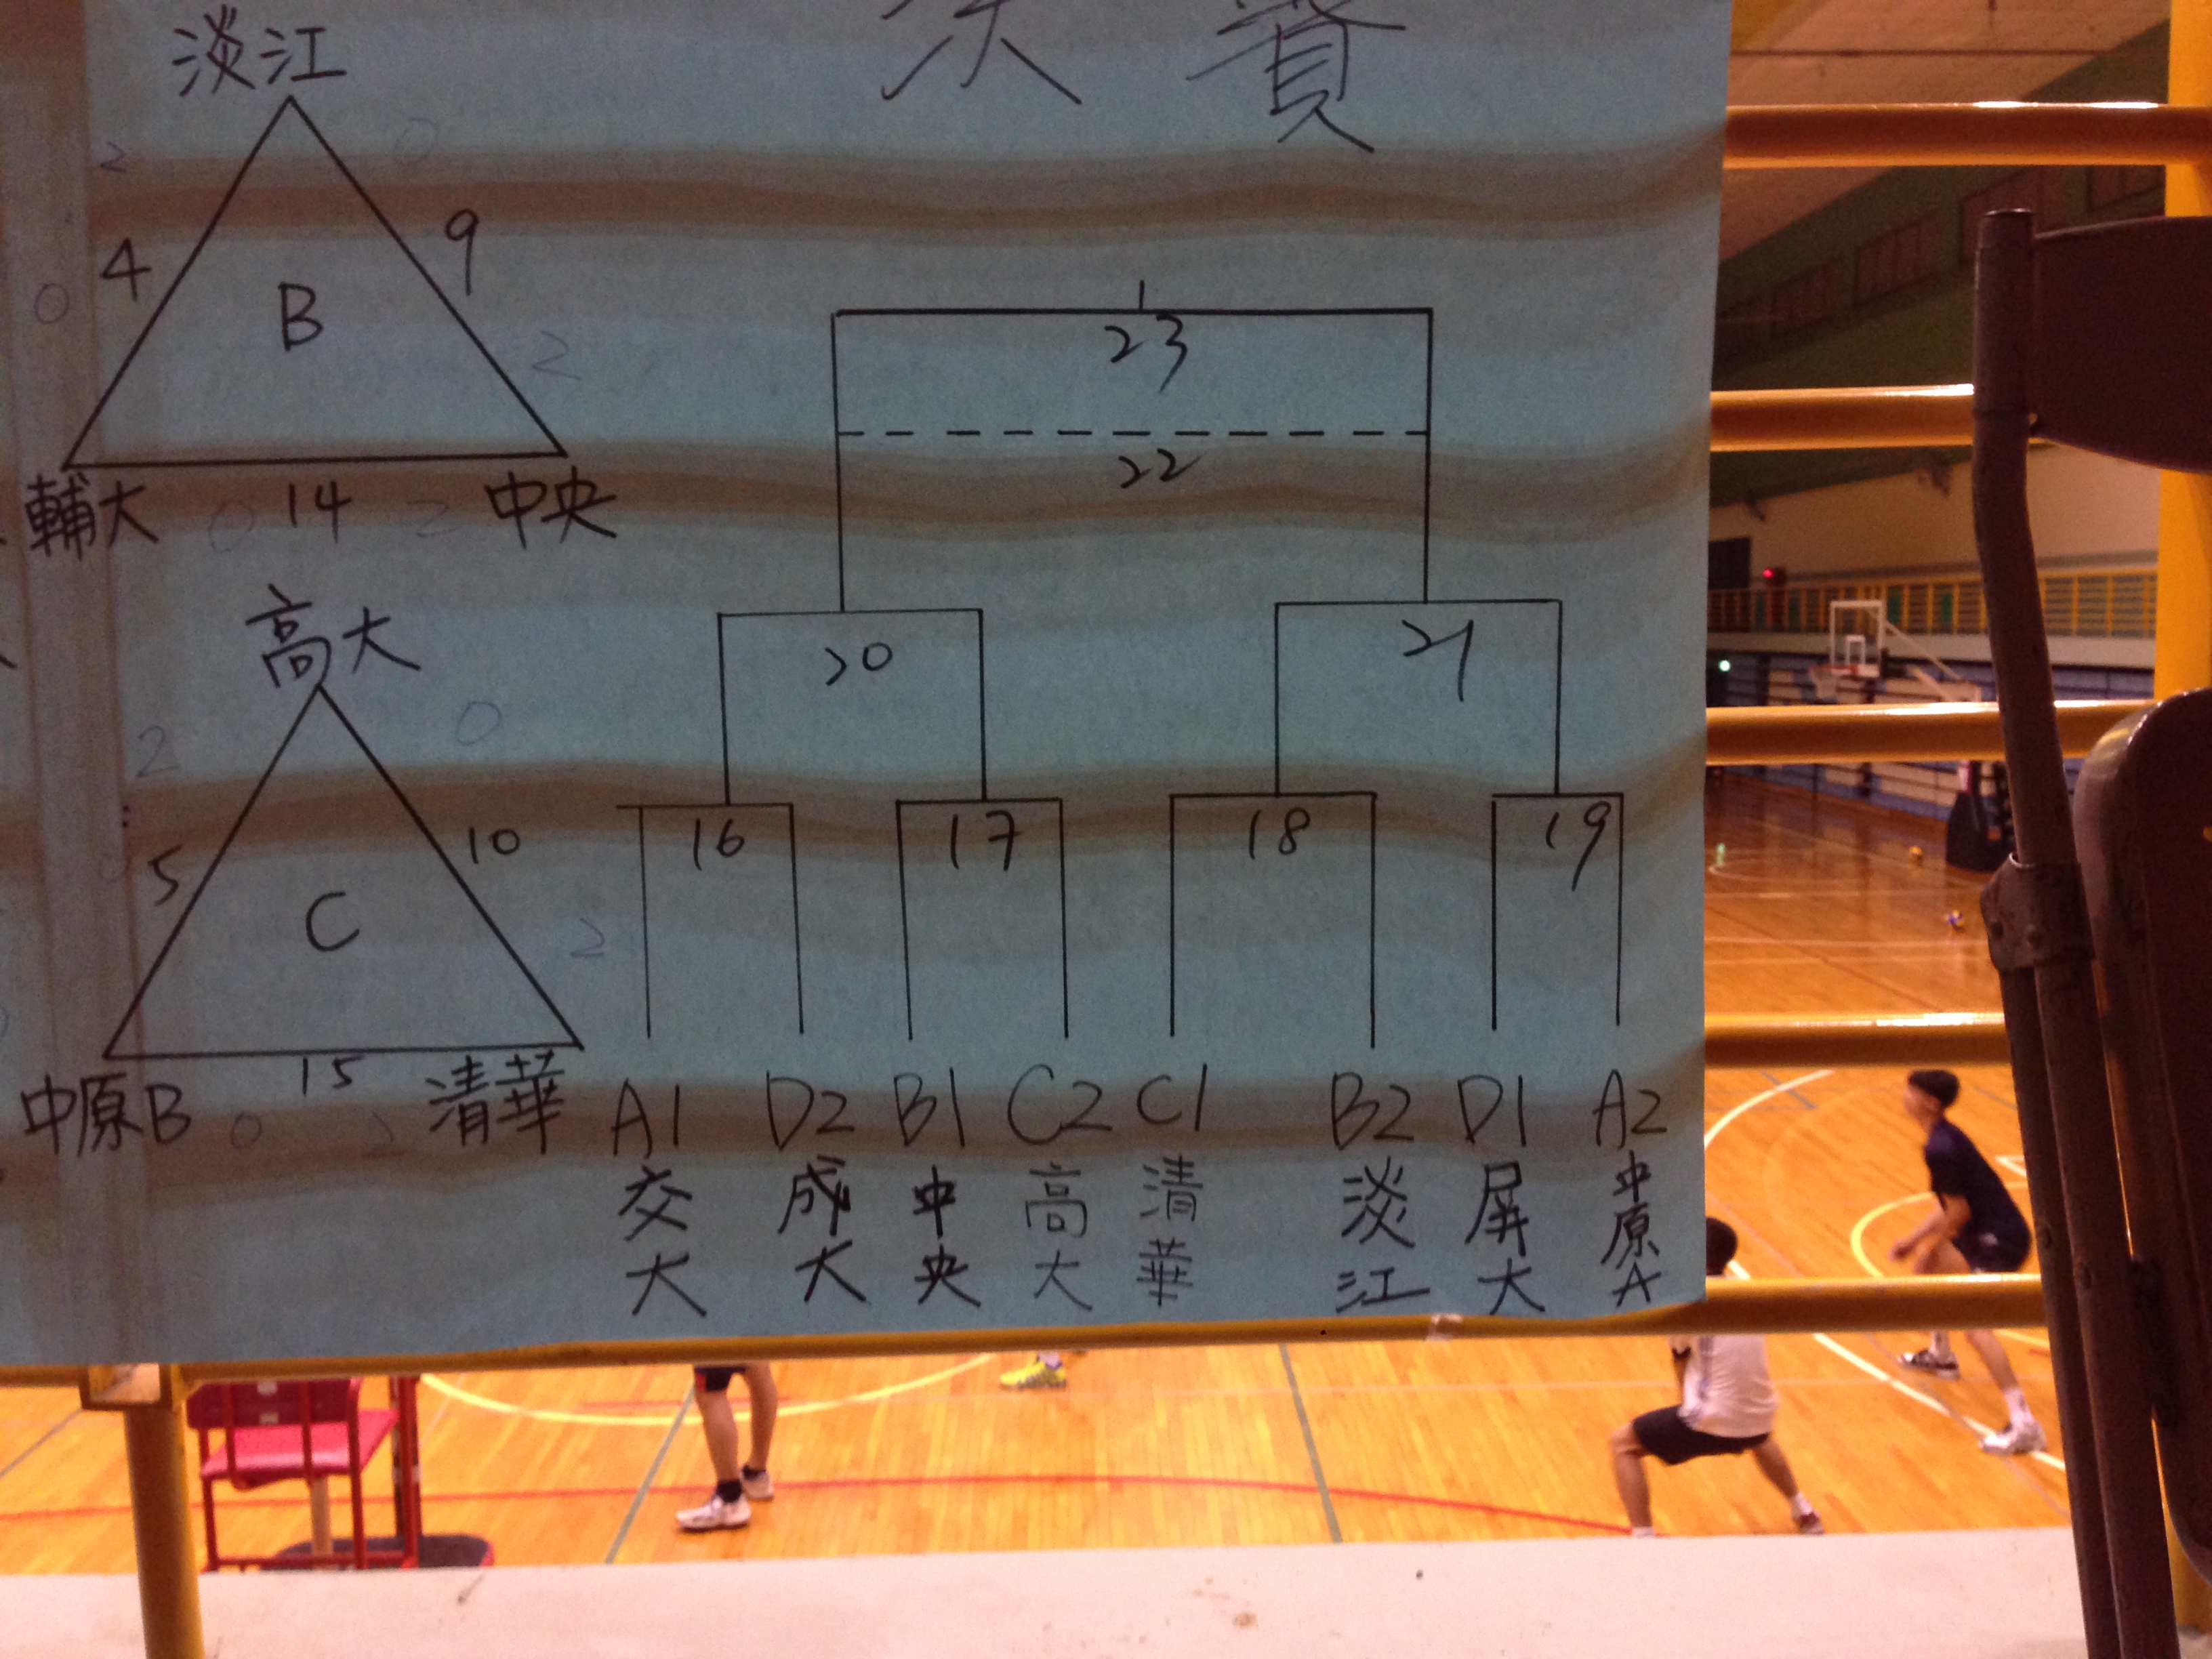 決賽
淡江
2 0
4 9
0 B 2
輔大 0 14 2 中央
高大
2 0
5 10
0 C 2
中原B 0 15 2 清華
23
22
20 21
16 17 18 19
A1 D2 B1 C2 C1 B2 D1 A2
交大 成大 中央 高大 清華 淡江 屏大 中原A